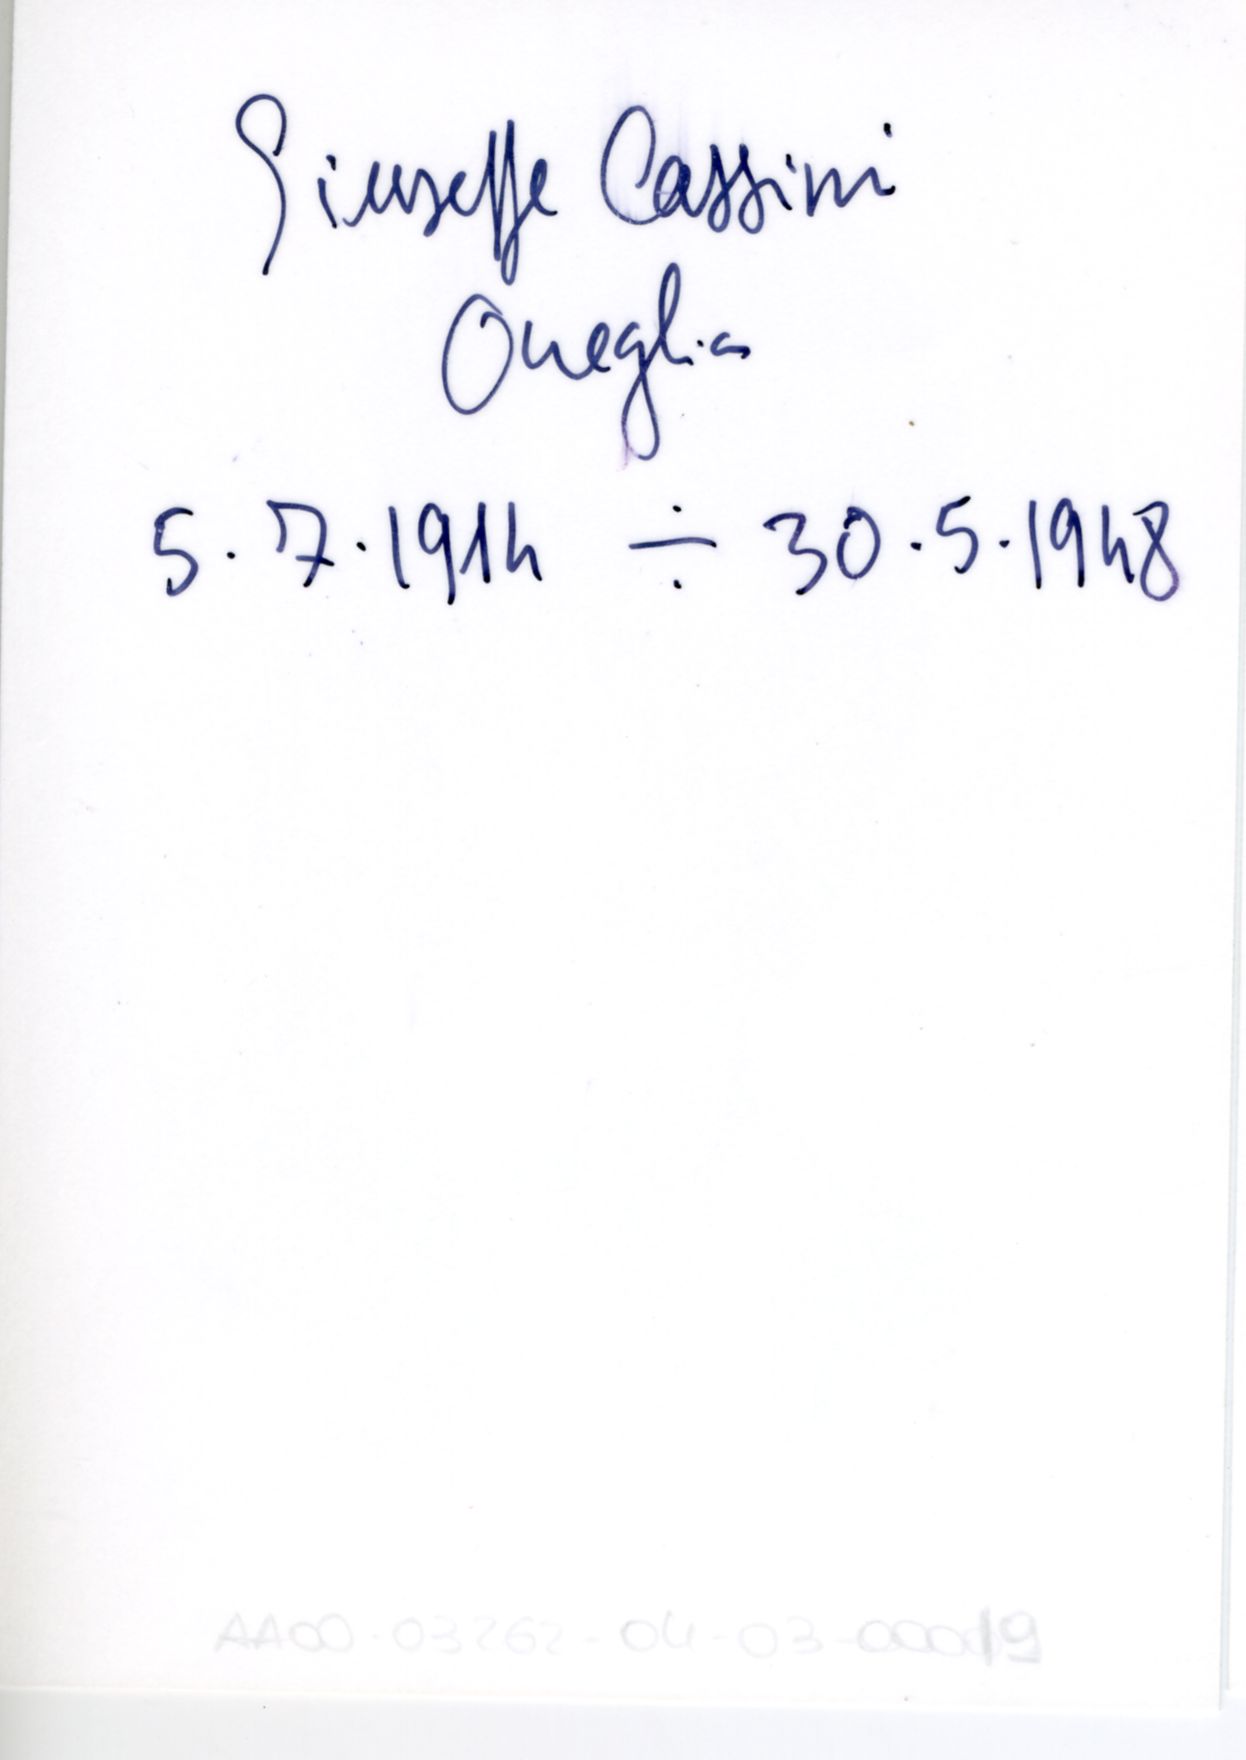 Giuseppe Cassini
Oneglia
5.7.1914 ÷ 30.5.1948
AA00-03262-04-03-00019